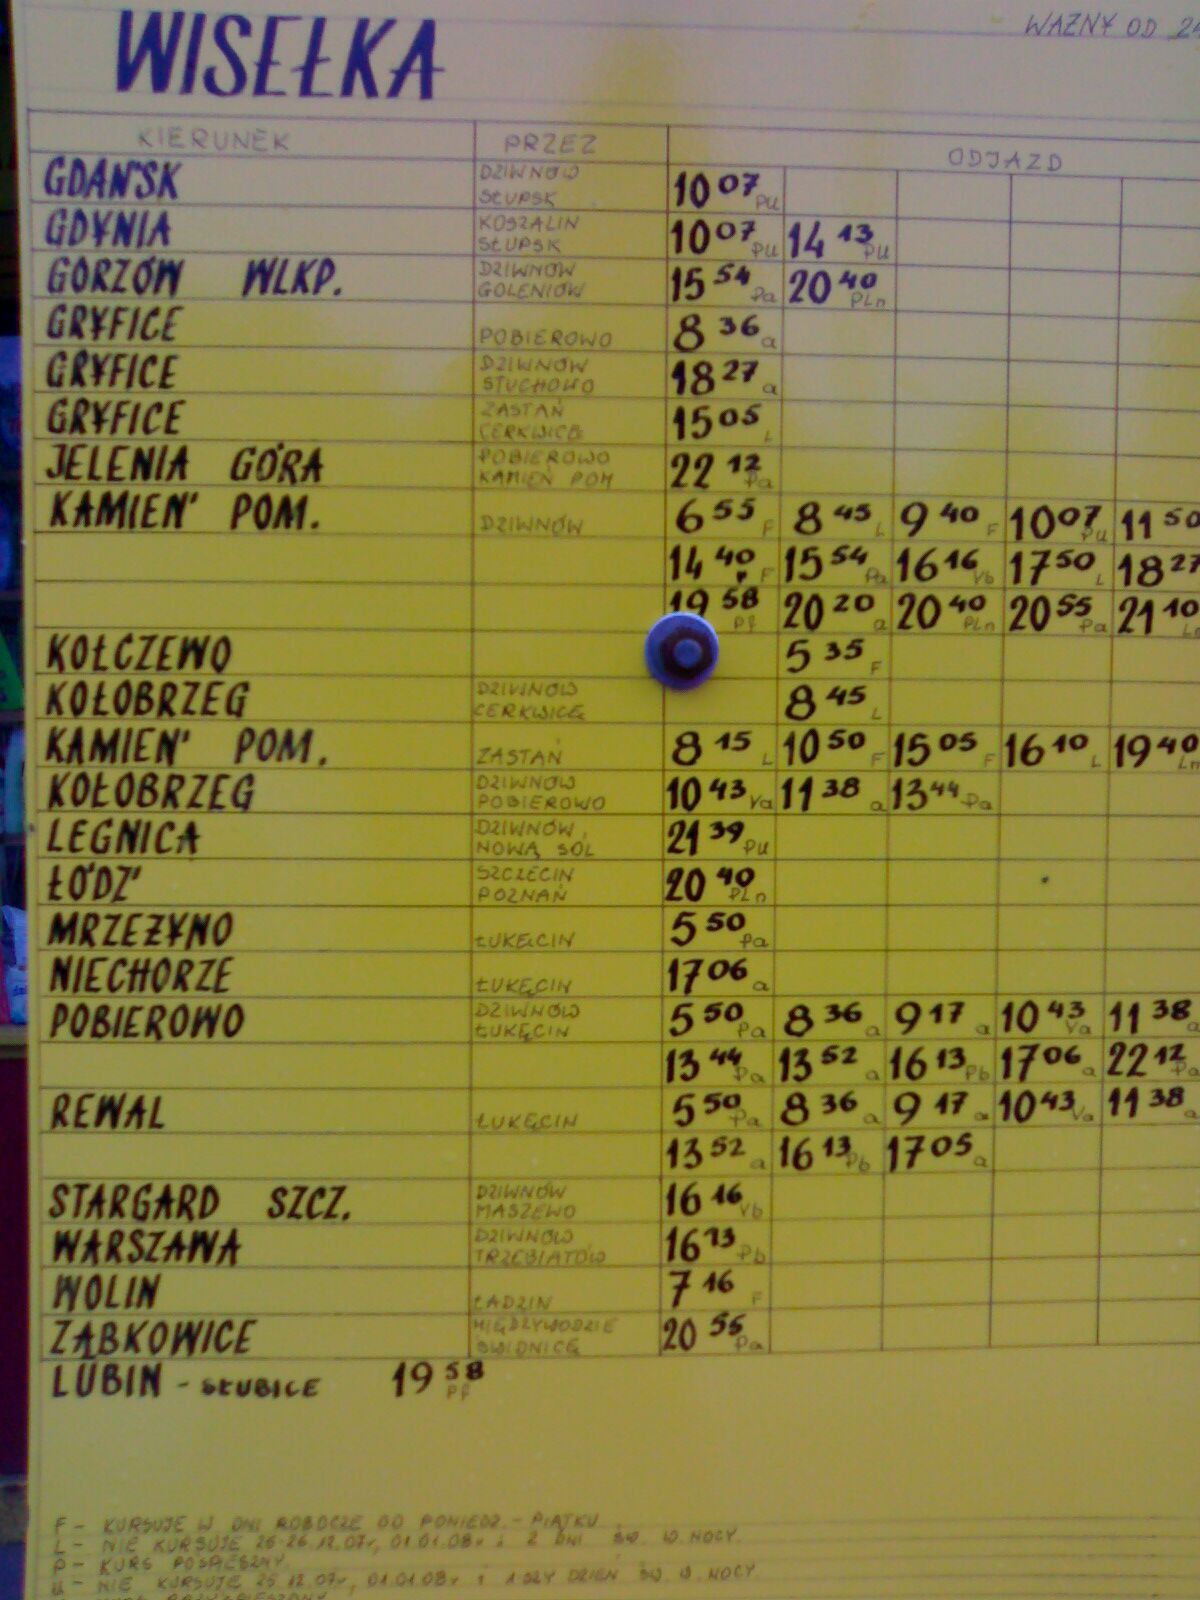 WISEŁKA
WAŻNY OD 24
KIERUNEK PRZEZ ODJAZD
GDAŃSK DZIWNÓW SŁUPSK 10 07 PU
GDYNIA KOSZALIN SŁUPSK 10 07 PU 14 13 PU
GORZÓW WLKP. DZIWNÓW GOLENIÓW 15 54 Pa 20 40 PLn
GRYFICE POBIEROWO 8 36 a
GRYFICE DZIWNÓW STUCHOWO 18 27 a
GRYFICE ZASTAŃ CERKWICE 15 05 L
JELENIA GÓRA POBIEROWO KAMIEŃ POM 22 12 Pa
KAMIEŃ POM. DZIWNÓW 6 55 F 8 45 L 9 40 F 10 07 PU 11 50
14 40 F 15 54 Pa 16 16 Vb 17 50 L 18 27
19 58 Pf 20 20 a 20 40 PLn 20 55 Pa 21 10 Ln
KOŁCZEWO 5 35 F
KOŁOBRZEG DZIWNÓW CERKWICĘ 8 45 L
KAMIEŃ POM. ZASTAŃ 8 15 L 10 50 F 15 05 F 16 10 L 19 40 Ln
KOŁOBRZEG DZIWNÓW POBIEROWO 10 43 Va 11 38 a 13 44 Pa
LEGNICA DZIWNÓW, NOWĄ SÓL 21 39 PU
ŁÓDŹ SZCZECIN POZNAŃ 20 40 PLn
MRZEŻYNO ŁUKĘCIN 5 50 Pa
NIECHORZE ŁUKĘCIN 17 06 a
POBIEROWO DZIWNÓW ŁUKĘCIN 5 50 Pa 8 36 a 9 17 a 10 43 Va 11 38 a
13 44 Pa 13 52 a 16 13 Pb 17 06 a 22 12 Pa
REWAL ŁUKĘCIN 5 50 Pa 8 36 a 9 17 a 10 43 Va 11 38 a
13 52 a 16 13 Pb 17 05 a
STARGARD SZCZ. DZIWNÓW MASZEWO 16 16 Vb
WARSZAWA DZIWNÓW TRZEBIATÓW 16 13 Pb
WOLIN ŁADZIN 7 16 F
ZĄBKOWICE MIĘDZYWODZIE ŚWIDNICĘ 20 55 Pa
LUBIN - SŁUBICE 19 58 Pf
F - KURSUJE W DNI ROBOCZE OD PONIEDZ. - PIĄTKU
L - NIE KURSUJE 25-26.12.07r, 01.01.08r i 2 DNI ŚW. W. NOCY.
P - KURS POSPIESZNY.
U - NIE KURSUJE 25.12.07r, 01.01.08r i 1-SZY DZIEŃ ŚW. W. NOCY.